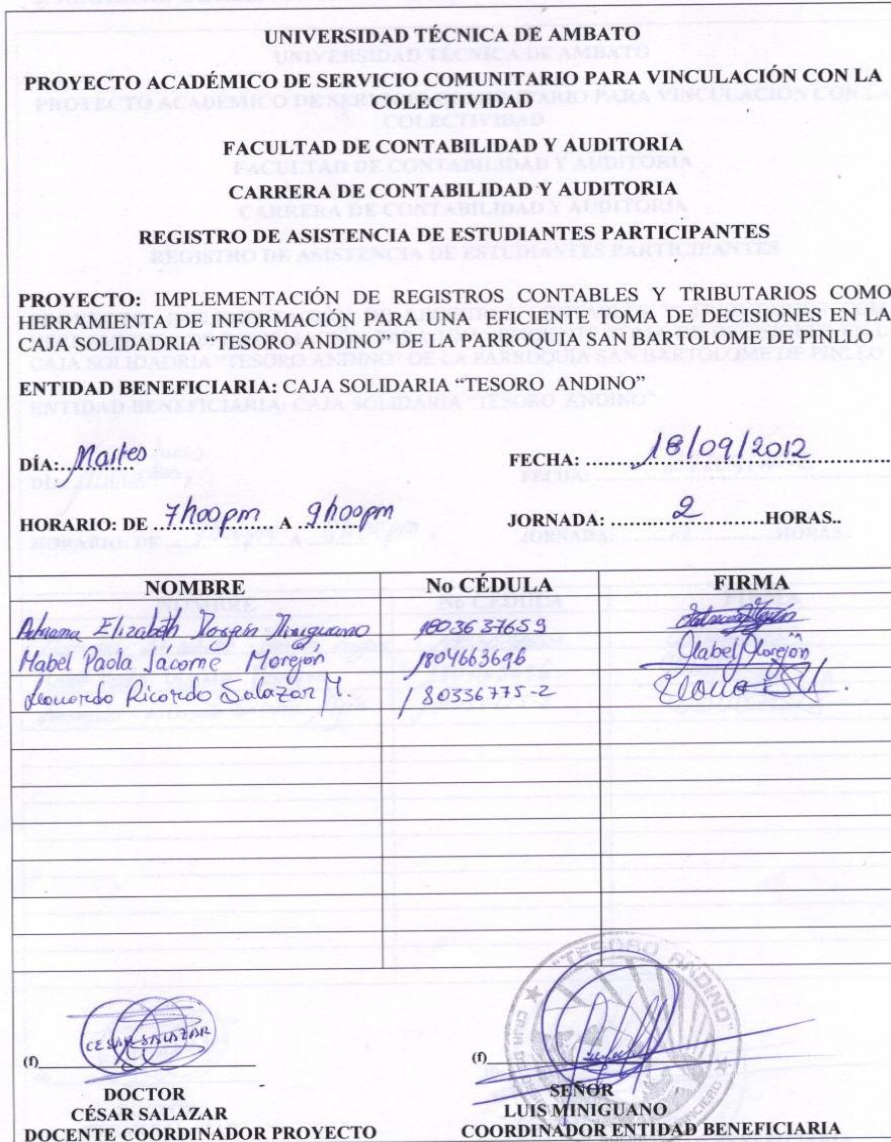 UNIVERSIDAD TÉCNICA DE AMBATO
PROYECTO ACADÉMICO DE SERVICIO COMUNITARIO PARA VINCULACIÓN CON LA
COLECTIVIDAD
FACULTAD DE CONTABILIDAD Y AUDITORIA
CARRERA DE CONTABILIDAD Y AUDITORIA
REGISTRO DE ASISTENCIA DE ESTUDIANTES PARTICIPANTES
PROYECTO: IMPLEMENTACIÓN DE REGISTROS CONTABLES Y TRIBUTARIOS COMO
HERRAMIENTA DE INFORMACIÓN PARA UNA EFICIENTE TOMA DE DECISIONES EN LA
CAJA SOLIDADRIA “TESORO ANDINO” DE LA PARROQUIA SAN BARTOLOME DE PINLLO
ENTIDAD BENEFICIARIA: CAJA SOLIDARIA “TESORO ANDINO”
DÍA: Martes FECHA: 18/09/2012
HORARIO: DE 7h00pm A 9h00pm JORNADA: 2 HORAS..
NOMBRE No CÉDULA FIRMA
Adriana Elizabeth 1803637659
Mabel Paola Jacome Morejón 1804663696 Mabel Morejón
Leonardo Ricardo Salazar M. 180336775-2
"TESORO ANDINO"
CESAR SALAZAR
(f) (f)
DOCTOR SEÑOR
CÉSAR SALAZAR LUIS MINIGUANO
DOCENTE COORDINADOR PROYECTO COORDINADOR ENTIDAD BENEFICIARIA